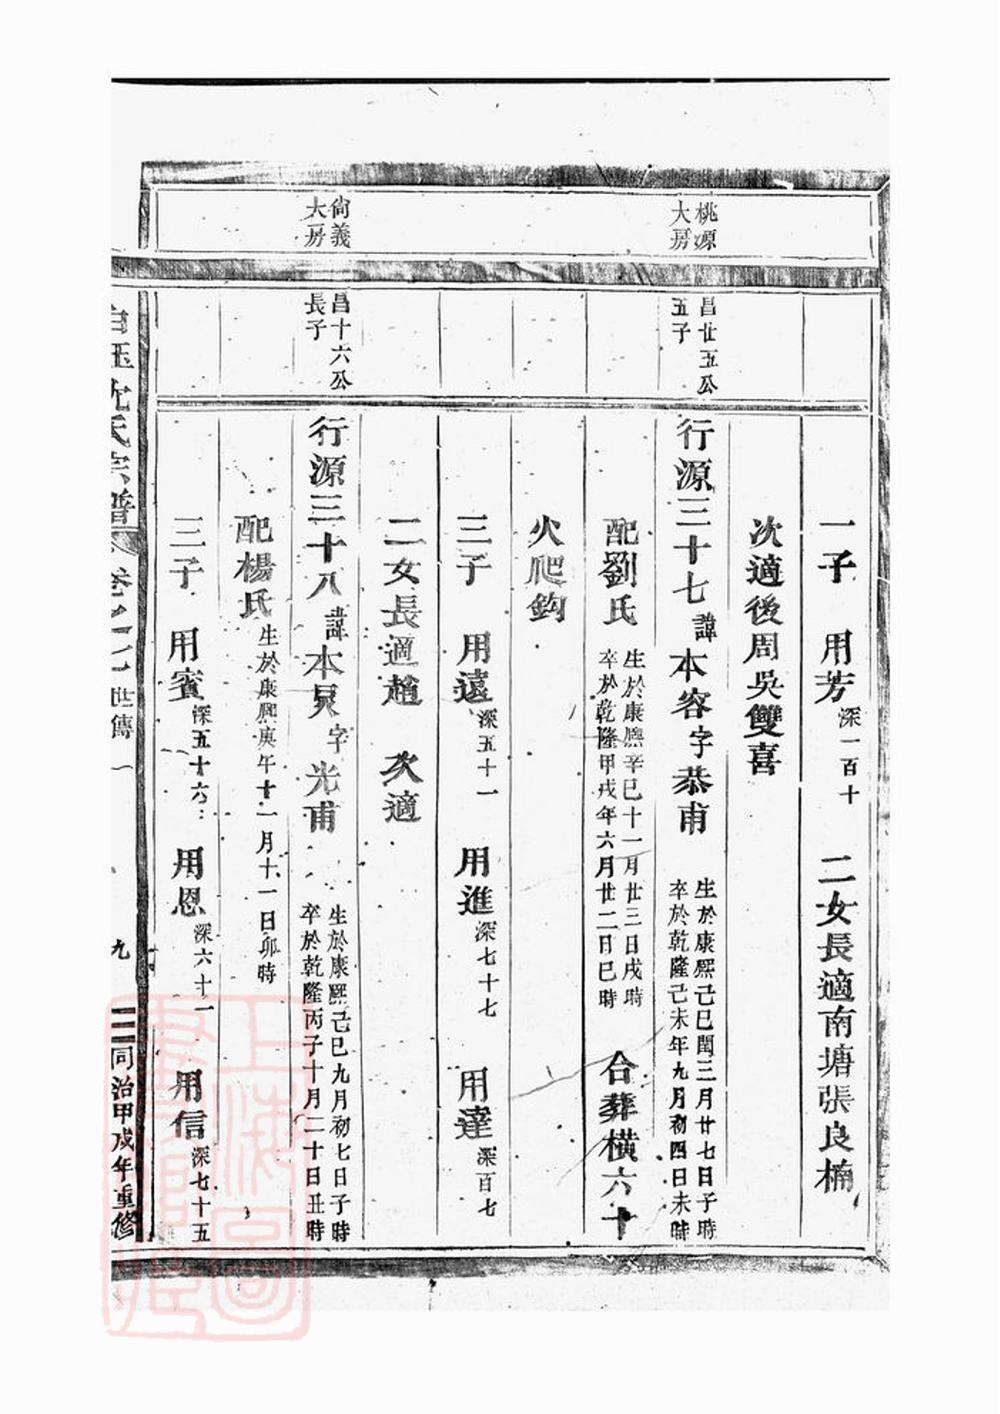 一子　用芳深一百十　二女長適南塘張良楠
次適後周吳雙喜
桃源
大房
昌廿五公
五子
行源三十七諱本容字恭甫
生於康熙己巳閏三月廿七日子時
卒於乾隆己未年九月初四日未時
配劉氏
生於康熙辛巳十一月廿三日戌時
卒於乾隆甲戌年六月廿二日巳時
合葬橫六十
火爬鈎
三子　用遠深五十一　用進深七十七　用達深百七
二女長適趙　次適
尙義
大房
昌十六公
長子
行源三十八諱本炅字光甫
生於康熙己巳九月初七日子時
卒於乾隆丙子十月二十日丑時
配楊氏生於康熙庚午十一月十一日卯時
三子　用賓深五十六　用恩深六十一　用信深七十五
沈氏宗譜　卷之七世傳一　九　同治甲戌年重修
上海圖書館藏